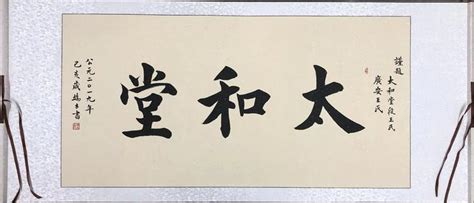 謹題
太和堂段王氏
廣安王氏
太和堂
公元二〇一九年
己亥歲 書